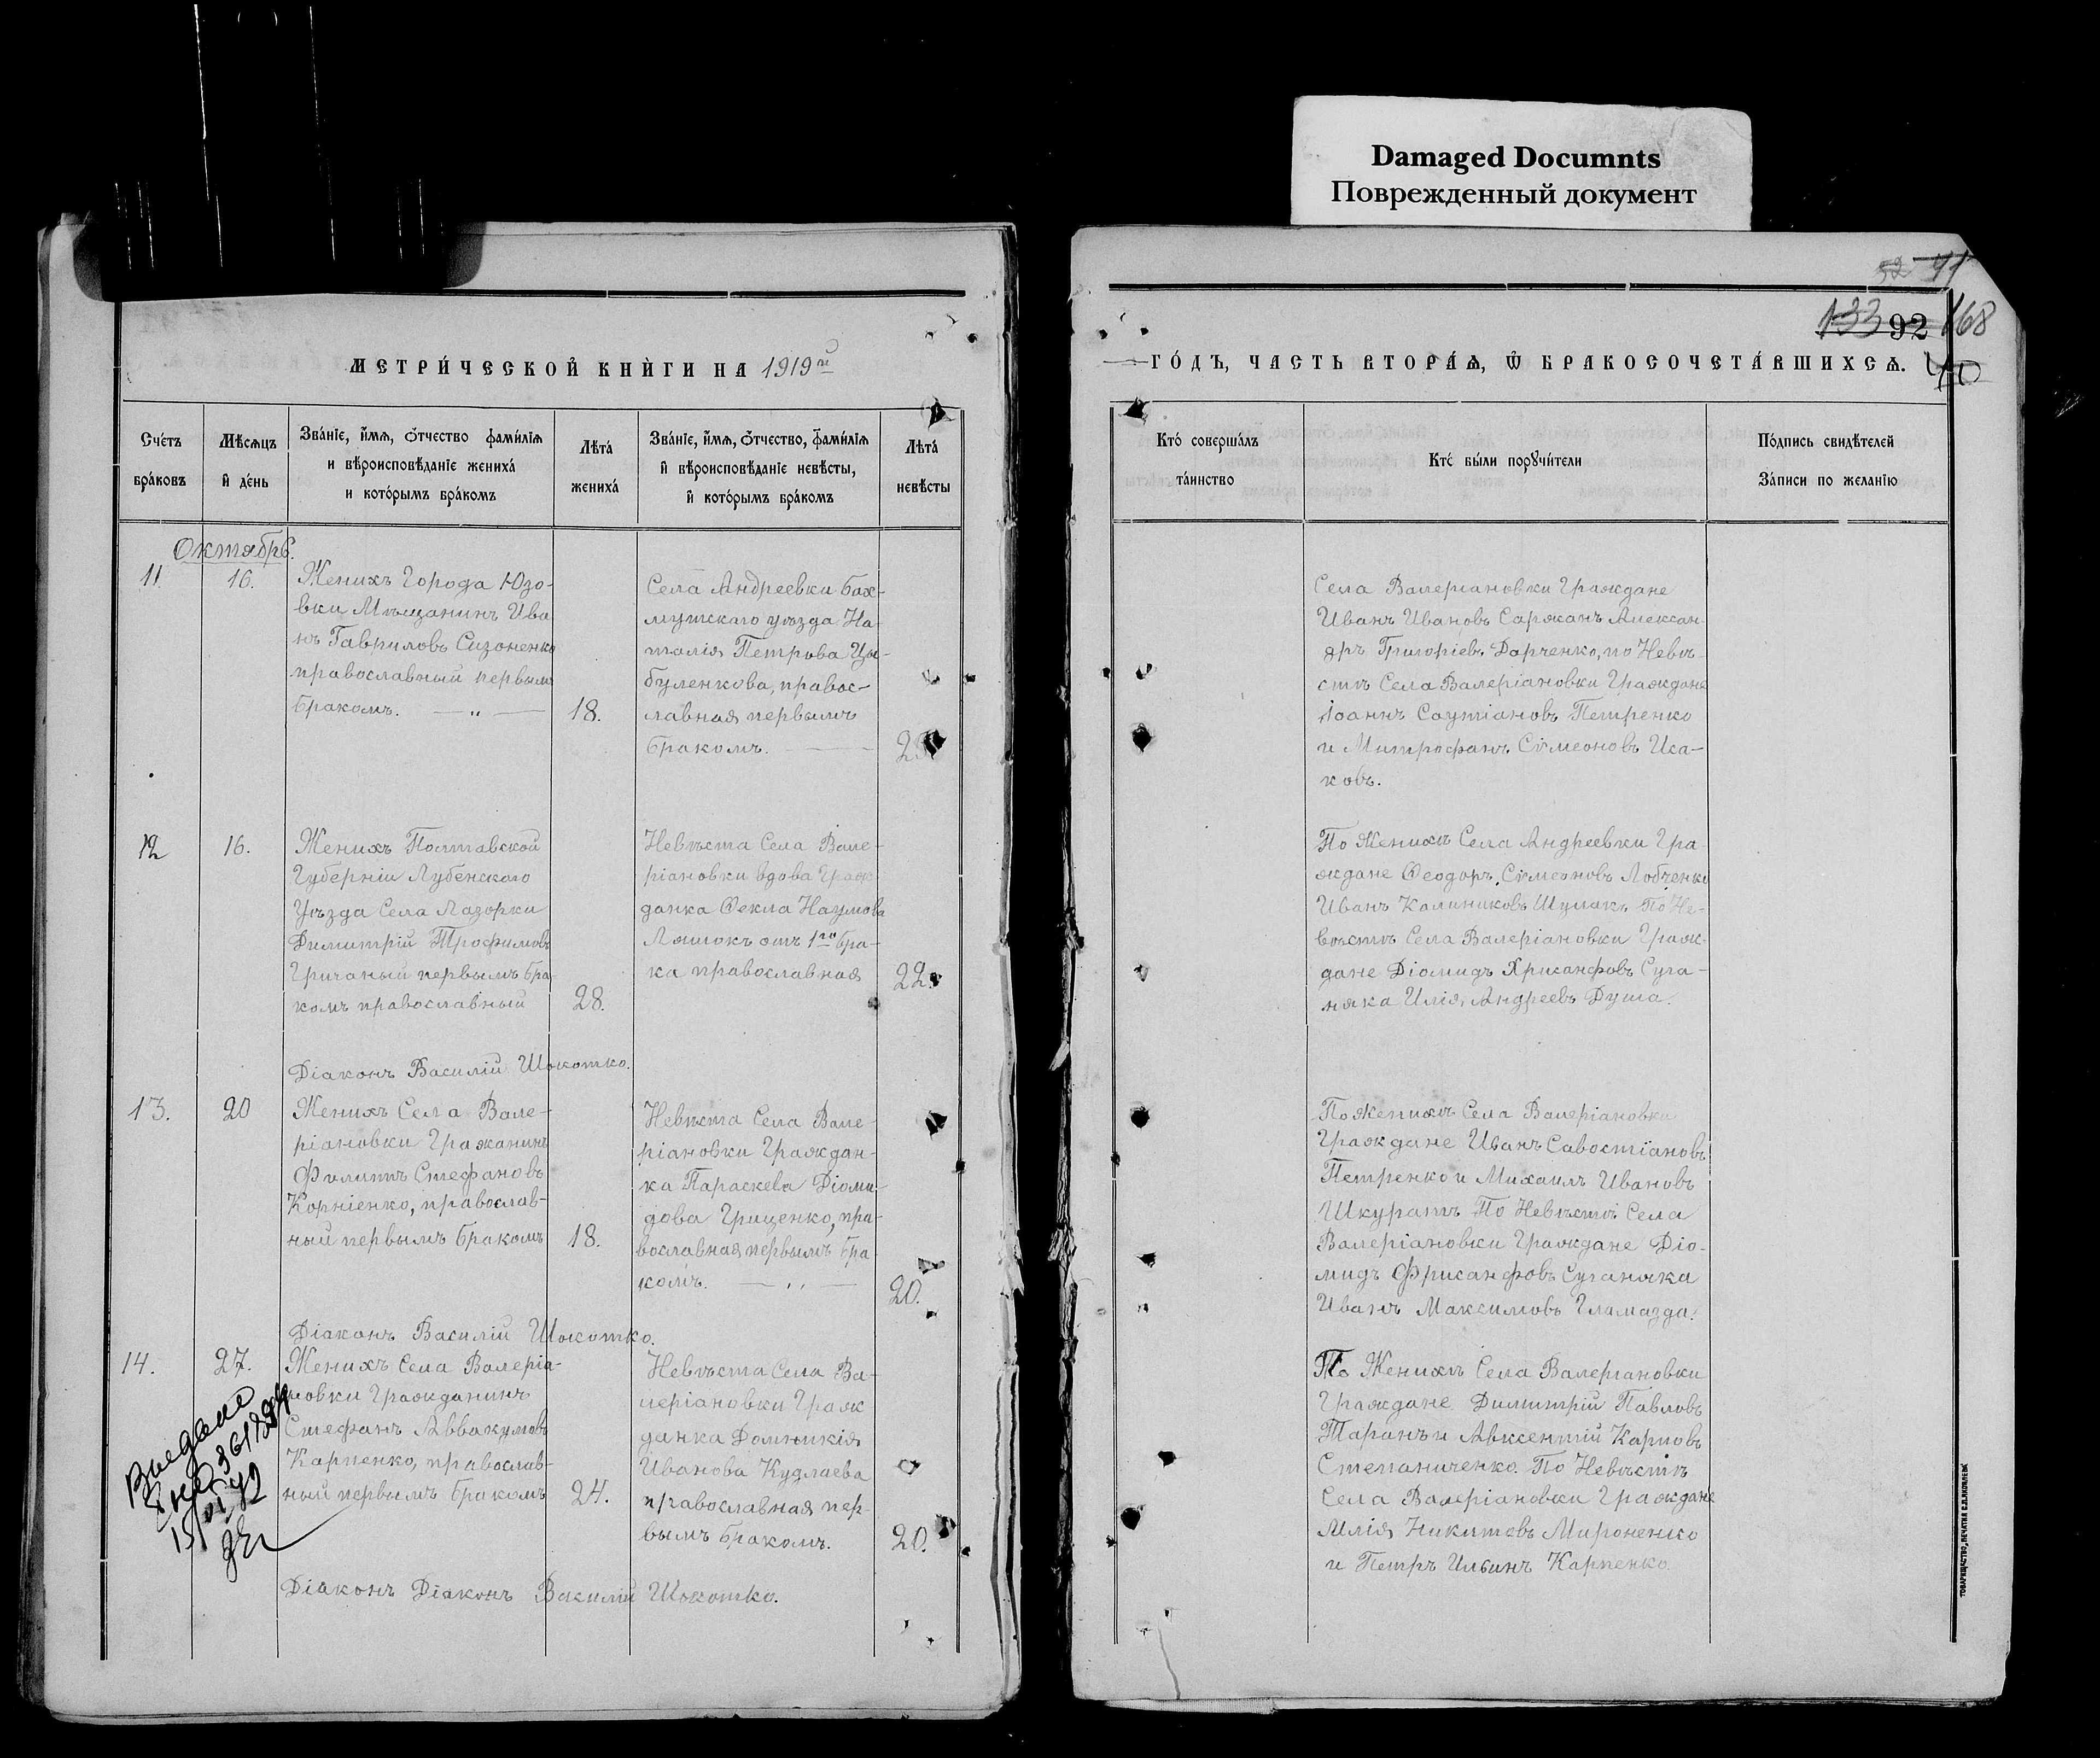 Damaged Documnts
Поврежденный документ
МЕТРИ́ЧЕСКОЙ КНИ́ГИ НА 1919й
Сче́тъ
бра́ковъ
Мѣ́сѧцъ
и҆ де́нь
Зва́нїе, и҆́мѧ, ѻ҆́тчество фами́лїѧ
и вѣроисповѣ́данїе жениха́
и кото́рымъ бра́комъ
Лѣта́
жениха́
Зва́нїе, и҆́мѧ, ѻ҆́тчество, фами́лїѧ
и҆ вѣроисповѣ́данїе невѣ́сты,
и҆ кото́рымъ бра́комъ
Лѣта́
невѣ́сты
Октябрь.
11
16.
Женихъ Города Юзо-
вки Мѣщанинъ Ива
нъ Гавриловъ Сизоненко
православный первым
бракомъ. — „ —
18.
Села Андреевки Бах-
мутскаго уѣзда На-
талія Петрова Цы-
буленкова, правос-
лавная первымъ
бракомъ.
12
16.
Женихъ Полтавской
Губерніи Лубенскаго
Уѣзда Села Лазорки
Димитрій Трофимовъ
Гричаный первымъ бра
комъ православный
28.
Невѣста Села Вале-
ріановки вдова Граж
данка Ѳекла Наумова
Ляшокъ отъ 1го бра-
ка православная
22.
Діаконъ Василій Шокотко.
13.
20
Женихъ Села Вале-
ріановки Гражанинъ
Филиппъ Стефановъ
Корніенко, православ-
ный первымъ бракомъ
18.
Невѣста Села Вале-
ріановки Граждан-
ка Параскева Діоми-
дова Гриценко, пра-
вославная первымъ бра
комъ. — „ —
20.
Діаконъ Василій Шокотко.
14.
27.
Женихъ Села Валеріа-
новки Гражданинъ
Стефанъ Аввакумовъ
Карпенко, православ-
ный первымъ бракомъ
24.
Невѣста Села Ва-
леріановки Граж
данка Домникія
Иванова Кудлаева
православная пер-
вымъ бракомъ.
20.
Діаконъ Діаконъ Василій Шокотко.
52 41
133 92 168
40
ГО́ДЪ, ЧАСТЬ ВТОРА́Ѧ, Ѽ БРАКОСОЧЕТА́ВШИХСѦ.
Кто́ соверша́лъ
та́инство
Кто́ бы́ли порꙋчи́тели
По́дпись свидѣ́телей
За́писи по жела́нїю
Села Валеріановки Граждане
Иванъ Ивановъ Саржанъ Алексан-
дръ Григоріевъ Дарченко, по Невѣ-
стѣ Села Валеріановки Граждане
Іоаннъ Саутіановъ Петренко
и Митрофанъ Сѵмеоновъ Иса-
ковъ.
По Женихѣ Села Андреевки Гра-
ждане Ѳеодоръ Сѵмеоновъ Лобченко
Иванъ Калиниковъ Шулакъ По Не-
вѣстѣ Села Валеріановки Граж-
дане Діомидъ Хрисанфовъ Суга-
няка Илія Андреевъ Душа.
По женихѣ Села Валеріановки
Граждане Иванъ Савостіановъ
Петренко и Михаилъ Ивановъ
Шкуратъ По Невѣстѣ Села
Валеріановки Граждане Діо-
мидъ Фрисанфовъ Суганяка
Иванъ Максимовъ Гламазда.
По Женихѣ Села Валеріановки
Граждане Димитрій Павловъ
Таранъ и Авксентій Карповъ
Степаниченко. По Невѣстѣ
Села Валеріановки Граждане
Илія Никитевъ Мироненко
и Петръ Ильинъ Карпенко.